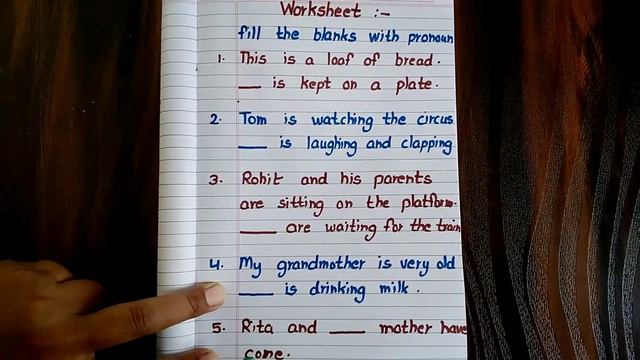 Worksheet :-
fill the blanks with pronoun
1. This is a loaf of bread.
___ is kept on a plate.
2. Tom is watching the circus
___ is laughing and clapping
3. Rohit and his parents
are sitting on the platform.
___ are waiting for the train
4. My grandmother is very old
___ is drinking milk.
5. Rita and ___ mother have
come.